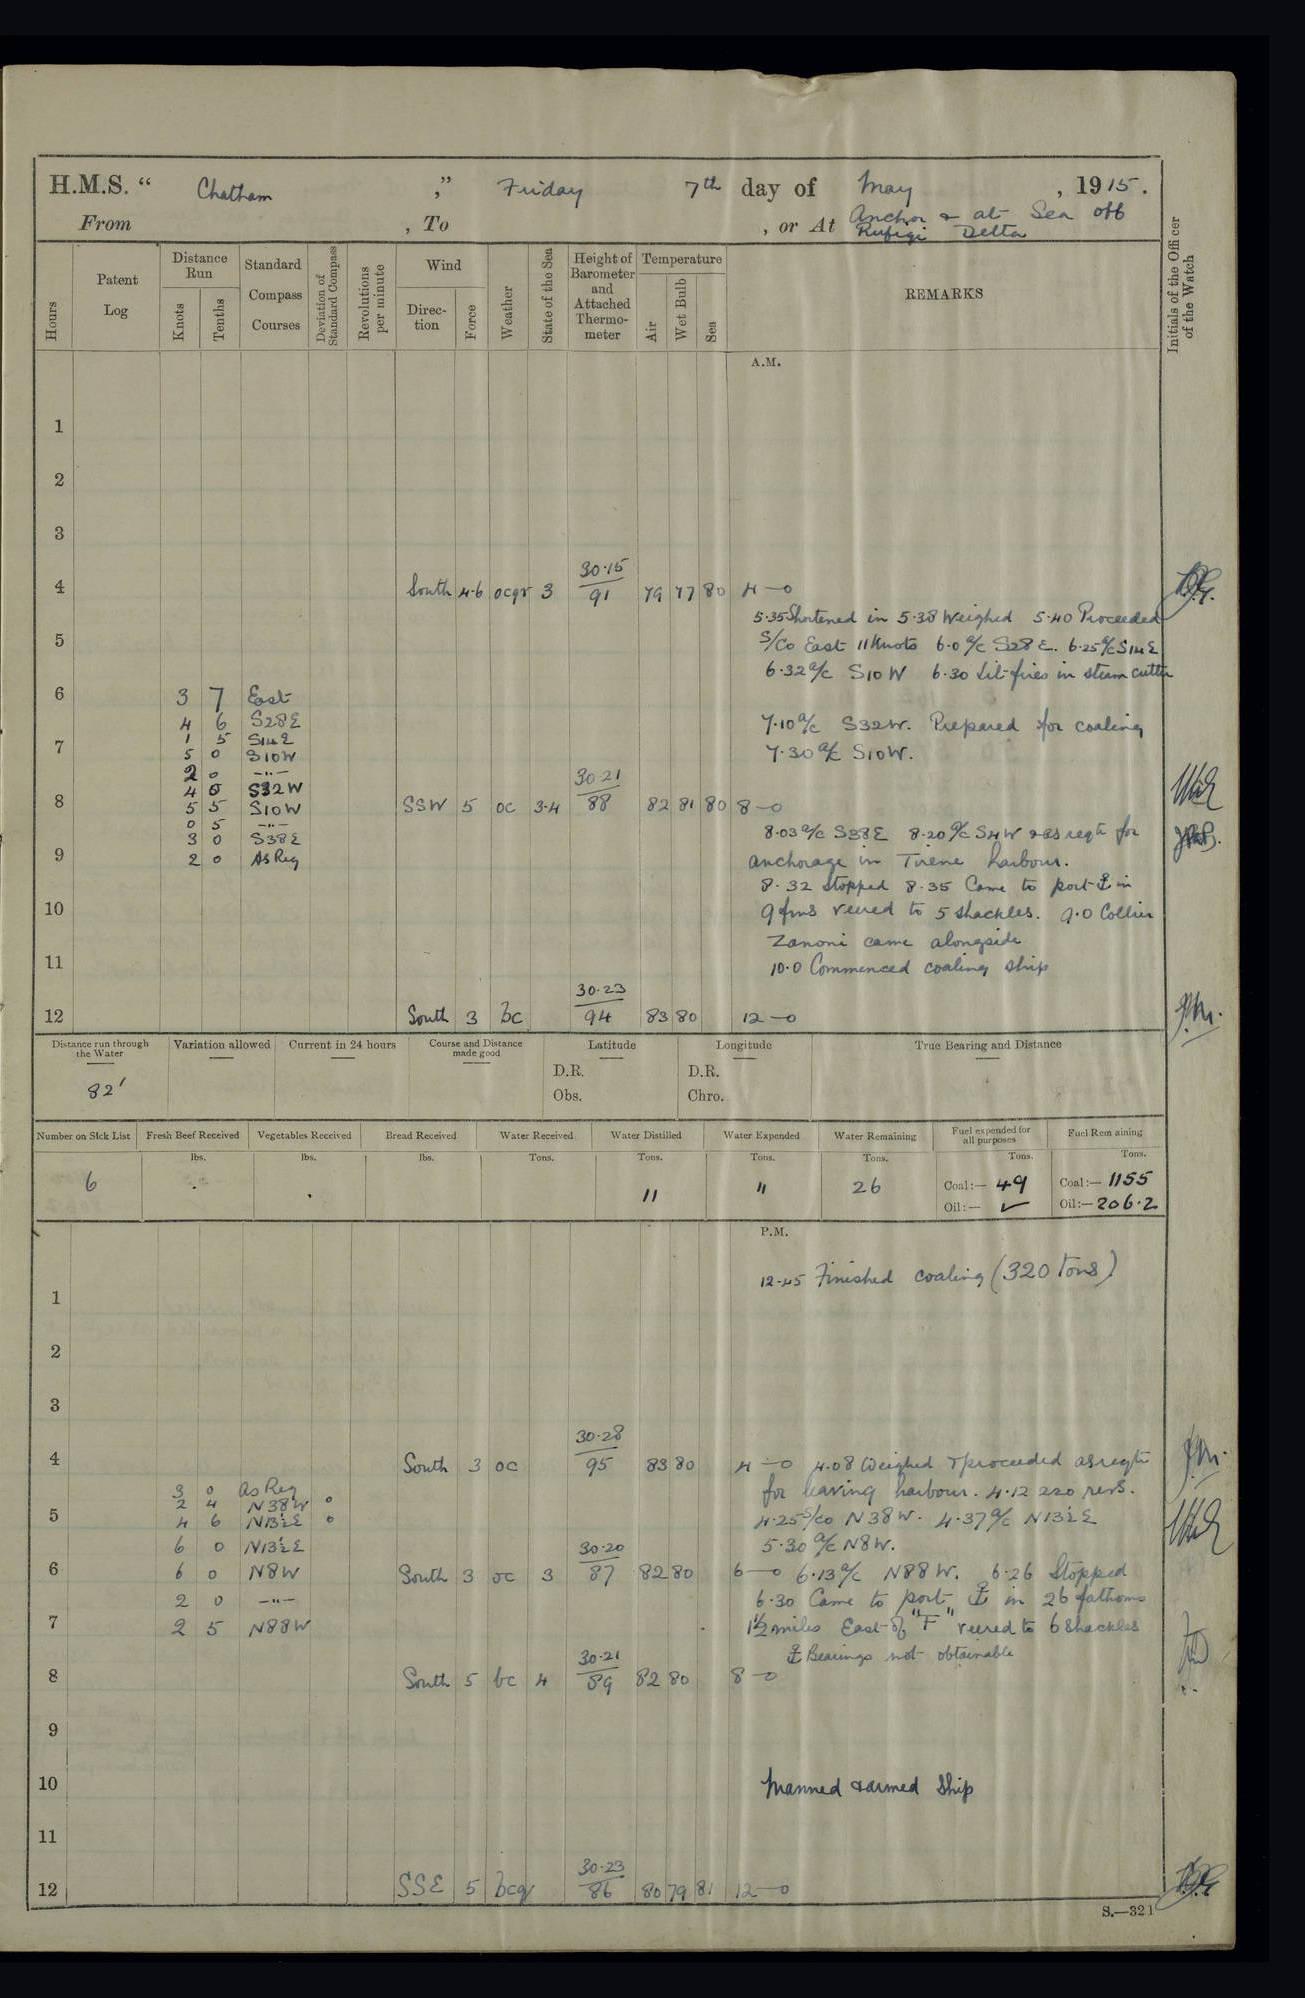 H.M.S. “ Chatham ,” Friday 7th day of May , 1915.
From , To , or At Anchor & at Sea off
Rufigi Delta
Hours
Patent Log
Distance Run
Knots
Tenths
Standard Compass Courses
Deviation of Standard Compass
Revolutions per minute
Wind
Direc-tion
Force
Weather
State of the Sea
Height of Barometer and Attached Thermo-meter
Temperature
Air
Wet Bulb
Sea
REMARKS
Initials of the Officer of the Watch
A.M.
1
2
3
30·15
4 South 4·6 ocqr 3 91 79 77 80 4—0
5·35 Shortened in 5·38 Weighed 5·40 Proceeded
5 S/Co East 11 Knots 6·0 a/c S28E. 6·25 a/c S14E
6·32 a/c S10W 6·30 Lit fires in steam cutter
6 3 7 East
4 6 S28E 7·10 a/c S32W. Prepared for coaling
1 5 S14E
7 5 0 S10W 7·30 a/c S10W.
2 0 -"-
30·21
4 0 S32W
8 5 5 S10W SSW 5 oc 3·4 88 82 81 80 8—0
0 5 -"-
3 0 S38E 8·03 a/c S38E 8·20 a/c S4W & as reqte for
9 2 0 As Req anchorage in Tirene harbour.
8·32 Stopped 8·35 Came to port ⚓ in
10 9 fms veered to 5 shackles. 9·0 Collier
Zanoni came alongside
11 10·0 Commenced coaling ship
30·23
12 South 3 bc 94 83 80 12—0
Distance run through the Water
Variation allowed
Current in 24 hours
Course and Distance made good
Latitude
Longitude
True Bearing and Distance
D.R. D.R.
82'
Obs. Chro.
Number on Sick List
Fresh Beef Received
Vegetables Received
Bread Received
Water Received
Water Distilled
Water Expended
Water Remaining
Fuel expended for all purposes
Fuel Remaining
lbs. lbs. lbs. Tons. Tons. Tons. Tons. Tons. Tons.
6 . . 11 " 26 Coal:— 49 Coal:— 1155
Oil:— ✓ Oil:— 206·2
P.M.
12·45 Finished coaling (320 Tons)
1
2
3
30·28
4 South 3 oc 95 83 80 4—0 4·08 Weighed & proceeded as reqte
3 0 As Req for leaving harbour. 4·12 220 revs.
2 4 N38W °
5 4 6 N13½E ° 4·25 S/Co N38W. 4·37 a/c N13½E
6 0 N13½E 5·30 a/c N8W.
30·20
6 6 0 N8W South 3 oc 3 87 82 80 6—0 6·13 a/c N88W. 6·26 Stopped
2 0 -"- 6·30 Came to port ⚓ in 26 fathoms
7 2 5 N88W 1½ miles East of "F" veered to 6 shackles
30·21
⚓ Bearings not obtainable
8 South 5 bc 4 89 82 80 8—0
9
10 Manned & armed Ship
11
30·23
12 SSE 5 bcq 86 80 79 81 12—0
S.—321